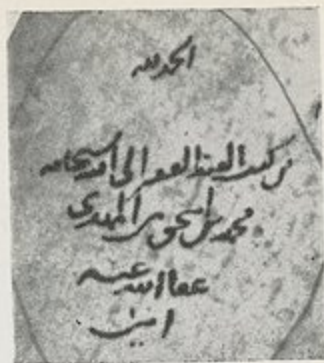 الحمد لله
من كتب العبد الفقير الى الله سبحانه
محمد بن اسحق بن المهدى
عفا الله عنه
امين